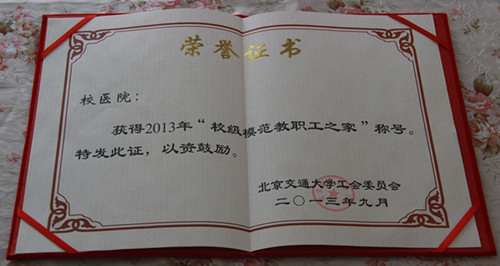 荣誉证书
校医院：
获得2013年“校级模范教职工之家”称号。
特发此证，以资鼓励。
北京交通大学工会委员会
二〇一三年九月